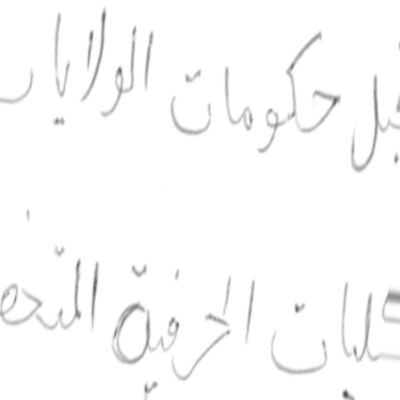 قبل حكومات الولايا
طلبات الحرفية المتخص